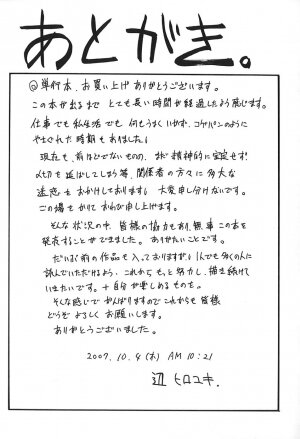 あとがき。
◎単行本、お買い上げありがとうございます。
この本が出るまで とても長い時間が経過したよう感じます。
仕事でも私生活でも 何もうまくいかず、コッペパンのように
やさぐれた時期もありました!
現在も、前ほどでないものの、まだ精神的に安定せず!
〆切を延ばしてしまう等、関係者の方々に多大な
迷惑をおかけしております。大変申し分けないです。
この場をかりておわび申し上げます。
そんな状況の中、皆様の協力もあり、無事この本を
発表することができました。ありがたいことです。
だいぶ前の作品も入っておりますが、1人でも多くの人に
読んでいただけるよう、これからもっと努力し、描き続けて
いきたいです。+自分が楽しめるものを。
そんな感じでがんばりますのでこれからも皆様
どうぞ よろしくお願いします。
ありがとうございました。
2007. 10. 4 (木) AM 10:21
辺 ヒロユキ.